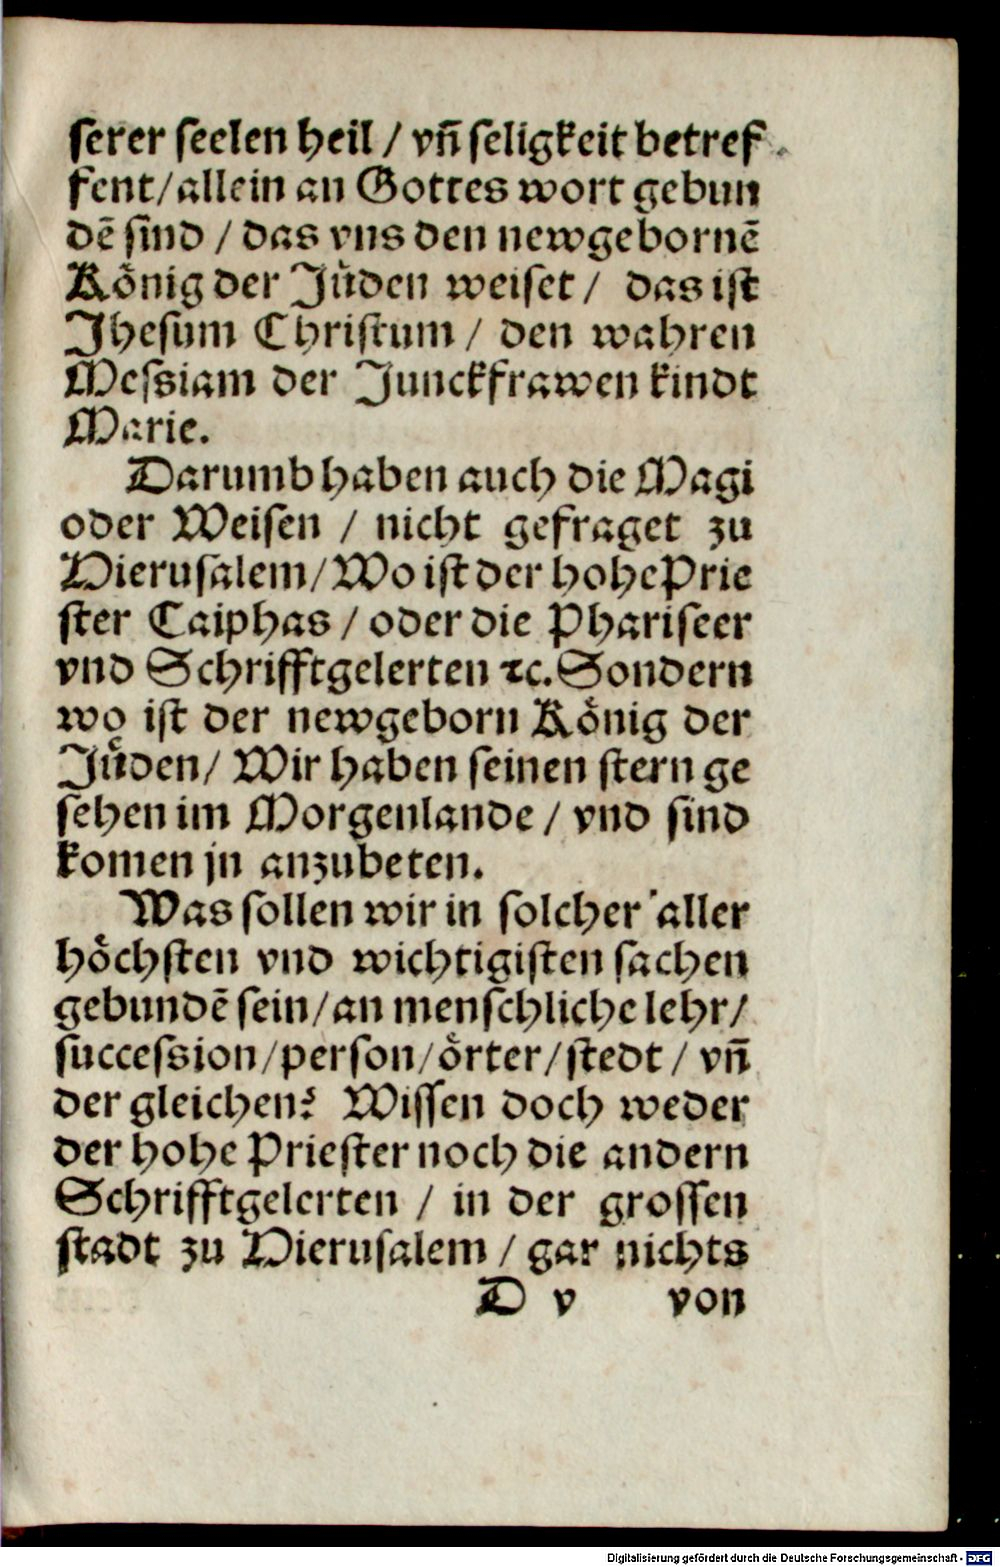 serer seelen heil / vñ seligkeit betref
fent/allein an Gottes wort gebun
dē sind / das vns den newgebornē
Koͤnig der Juͤden weiset / das ist
Jhesum Christum / den wahren
Messiam der Junckfrawen kindt
Marie.
Darumb haben auch die Magi
oder Weisen / nicht gefraget zu
Hierusalem/Wo ist der hohePrie
ster Caiphas / oder die Phariseer
vnd Schrifftgelerten ꝛc.Sondern
wo ist der newgeborn Koͤnig der
Juͤden/ Wir haben seinen stern ge
sehen im Morgenlande / vnd sind
komen jn anzubeten.
Was sollen wir in solcher aller
hoͤchsten vnd wichtigisten sachen
gebundē sein/an menschliche lehr/
succession/person/oͤrter/stedt / vñ
der gleichen? Wissen doch weder
der hohe Priester noch die andern
Schrifftgelerten / in der grossen
stadt zu Hierusalem / gar nichts
D v von
Digitalisierung gefördert durch die Deutsche Forschungsgemeinschaft - DFG